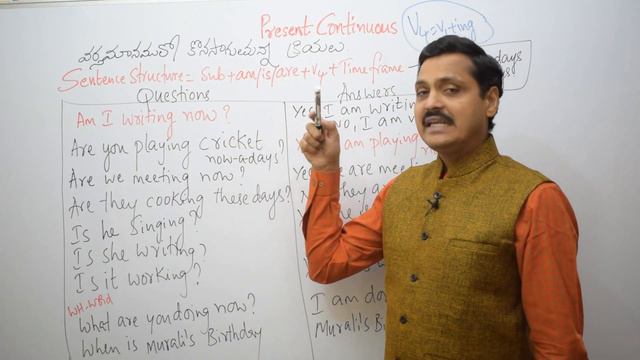 Present Continuous
V4=V1+ing
వర్తమానములో కొనసాగుతున్న క్రియలు
Sentence Structure = Sub+am/is/are+V4+Time frame
days
Questions
Answers
Am I writing now?
Yes, I am writing
no, I am
Are you playing cricket
now-a-days?
am playing
Are we meeting now?
we are mee
Are they cooking these days?
they a
Is he singing?
Is she writing?
Is it working?
WH-Word
What are you doing now?
I am do
When is Murali's Birthday
Murali's Bi